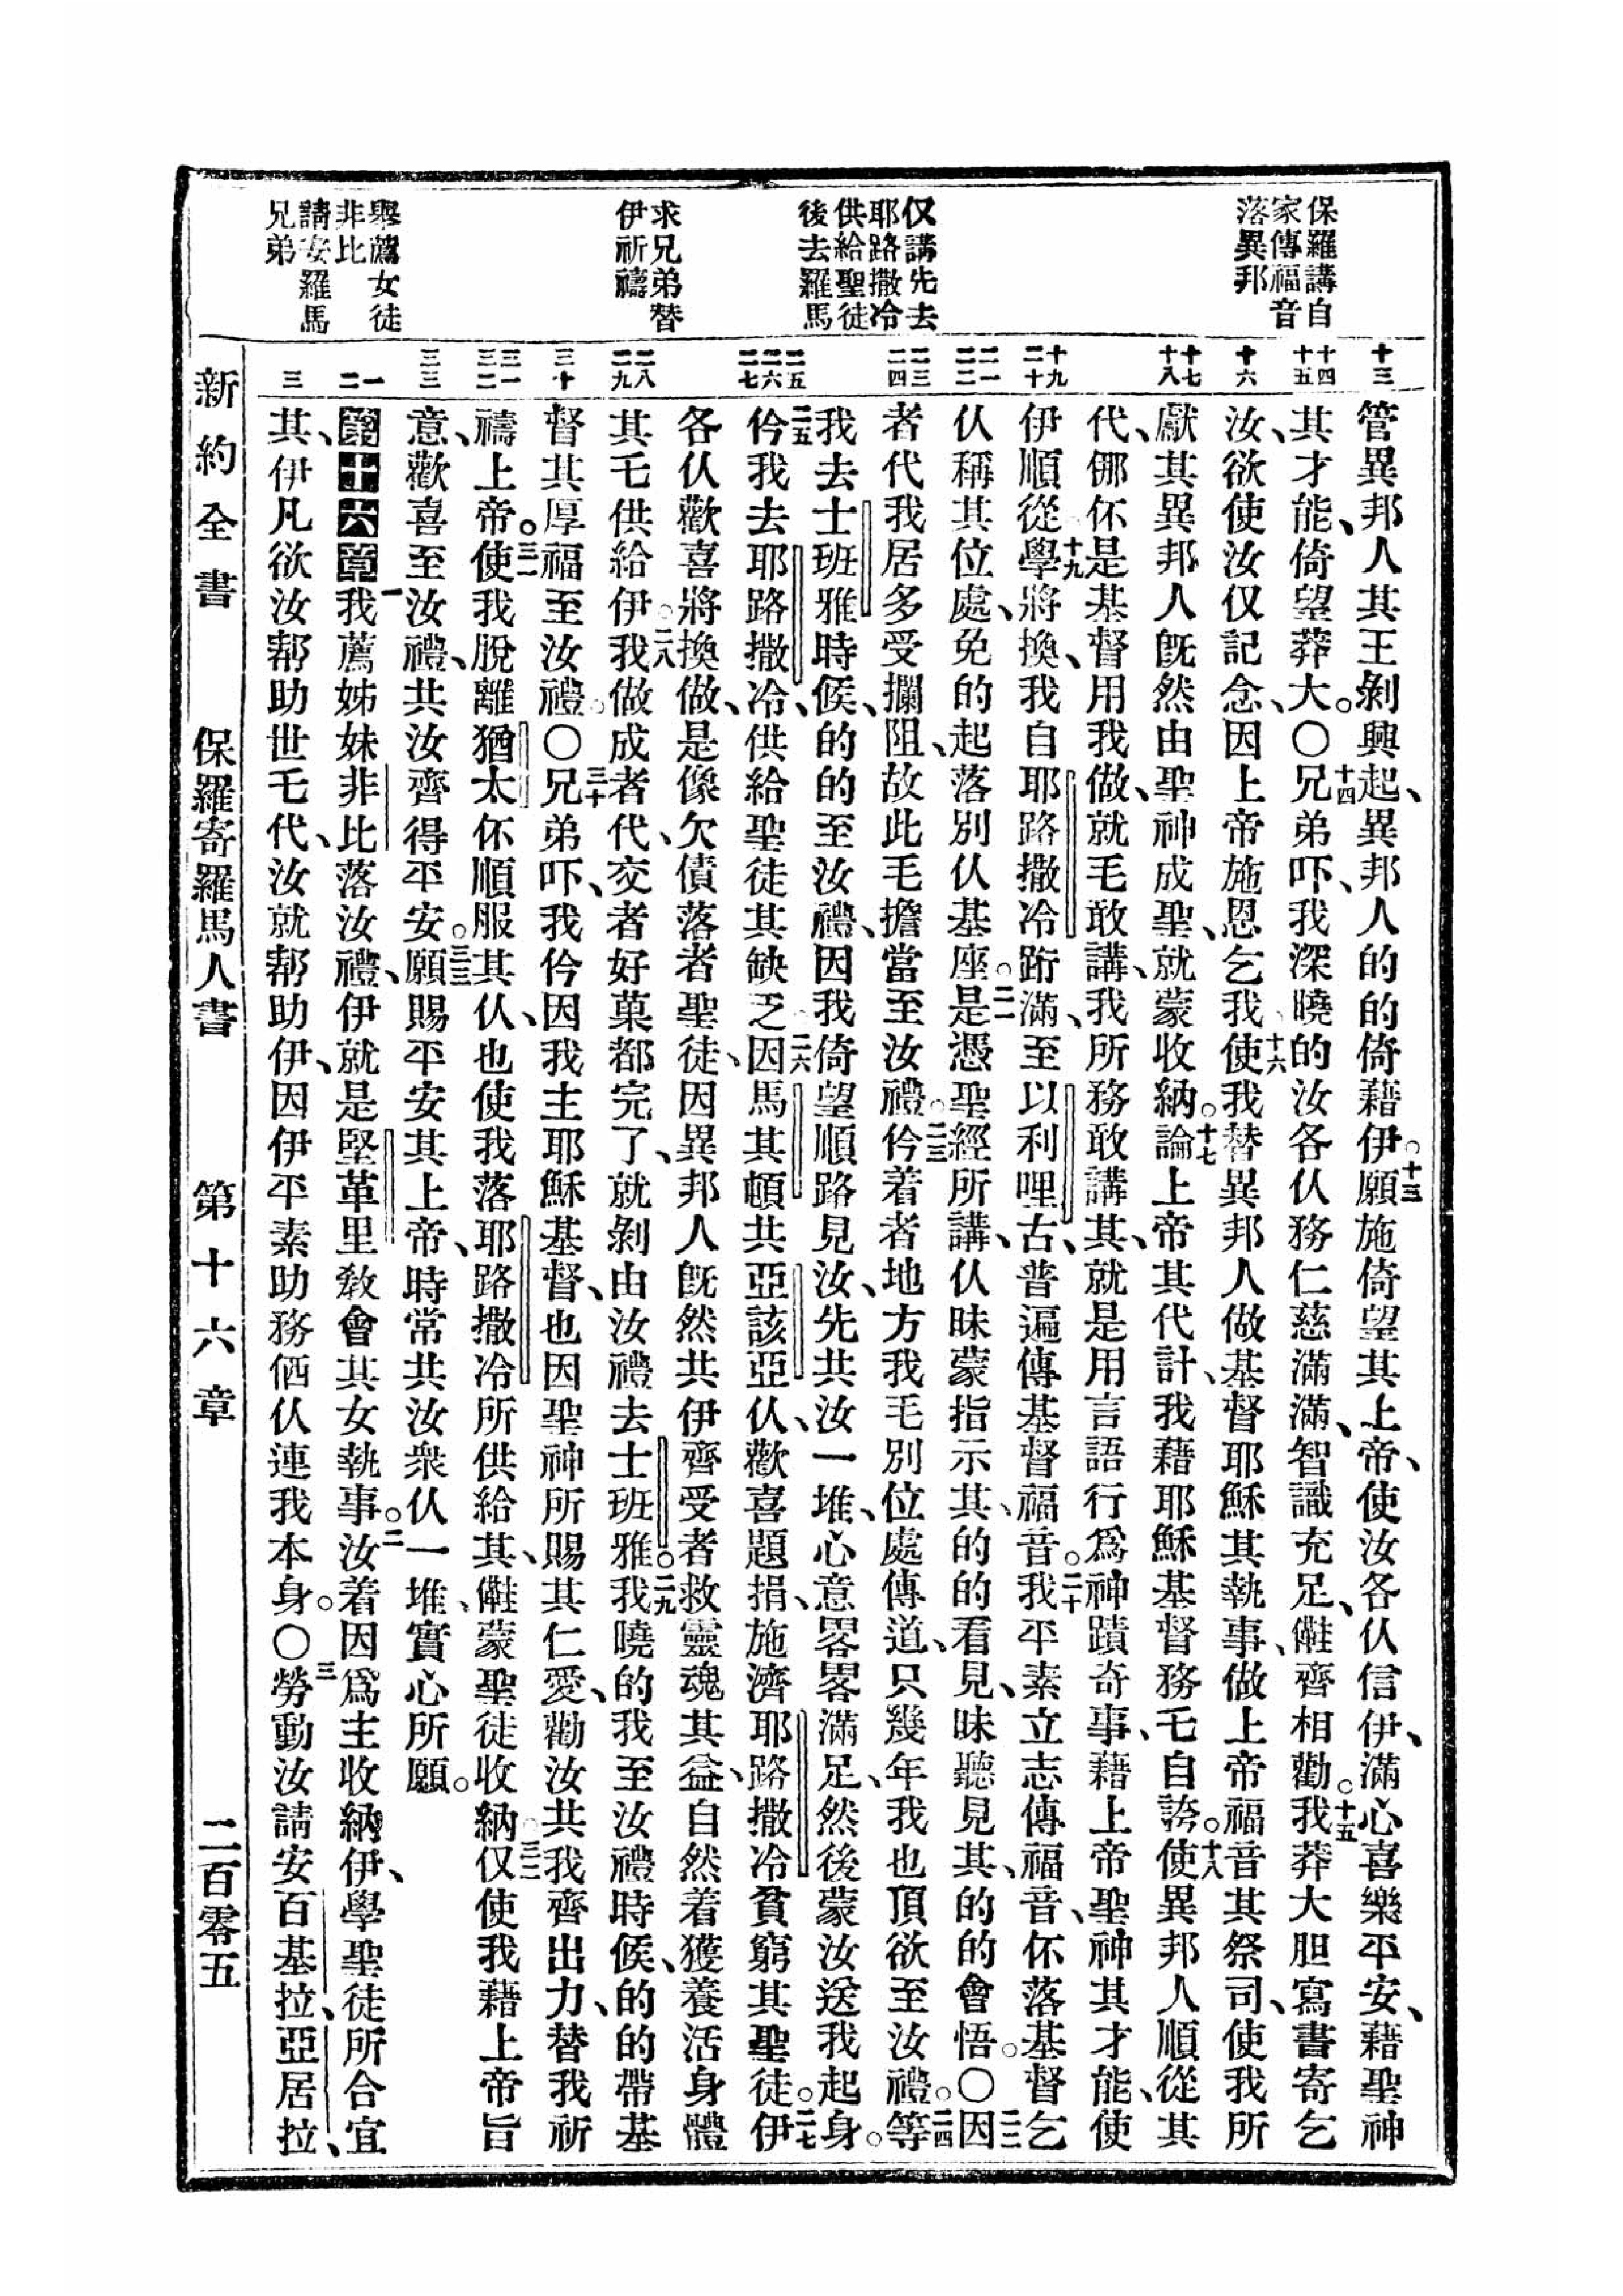 保羅講自
家傳福音
落異邦
仅講先去
耶路撒冷
供給聖徒
後去羅馬
求兄弟替
伊祈禱
舉薦女徒
非比
請安羅馬
兄弟
十三
十四
十五
十六
十七
十八
十九
二十
二一
二二
二三
二四
二五
二六
二七
二八
二九
三十
三一
三二
三三
一
二
三
管異邦人其王剝興起、異邦人的的倚藉伊。十三願施倚望其上帝、使汝各仈信伊、滿心喜樂平安、藉聖神
其才能、倚望莽大。〇十四兄弟吓、我深曉的汝各仈務仁慈滿滿、智識充足、儺齊相勸。十五我莽大胆寫書寄乞
汝、欲使汝仅記念、因上帝施恩乞我、十六使我替異邦人做基督耶穌其執事、做上帝福音其祭司、使我所
獻其異邦人既然由聖神成聖、就蒙收納。十七論上帝其代計、我藉耶穌基督務乇自誇。十八使異邦人順從其
代、㑚伓是基督用我做、就毛敢講、我所務敢講其、就是用言語行爲神蹟奇事、藉上帝聖神其才能、使
伊順從。十九學將換、我自耶路撒冷跲滿、至以利哩古、普遍傳基督福音。二十我平素立志傳福音、伓落基督乞
仈稱其位處、免的起落別仈基座。二一是憑聖經所講、仈昧蒙指示其、的的看見、昧聽見其、的的會悟。〇二二因
者代我居多受攔阻、故此毛擔當至汝禮。二三伱着者地方我毛別位處傳道、只幾年我也頂欲至汝禮。二四等
我去士班雅時候、的的至汝禮、因我倚望順路見汝、先共汝一堆、心意畧畧滿足、然後蒙汝送我起身。
二五伱我去耶路撒冷、供給聖徒其缺乏。二六因馬其頓共亞該亞仈、歡喜題捐、施濟耶路撒冷貧窮其聖徒。二七伊
各仈歡喜將換做、是像欠債落者聖徒、因異邦人既然共伊齊受者救靈魂其益、自然着獲養活身體
其乇供給伊。二八我做成者代、交者好菓都完了、就剝由汝禮去士班雅。二九我曉的我至汝禮時候、的的帶基
督其厚福至汝禮。〇三十兄弟吓、我伱因我主耶穌基督、也因聖神所賜其仁愛、勸汝共我齊出力、替我祈
禱上帝。三一使我脫離猶太伓順服其仈、也使我落耶路撒冷所供給其、儺蒙聖徒收納。三二仅使我藉上帝旨
意、歡喜至汝禮、共汝齊得平安。三三願賜平安其上帝、時常共汝衆仈一堆、實心所願。
第十六章一我薦姊妹非比落汝禮、伊就是堅革里教會其女執事。二汝着因爲主收納伊、學聖徒所合宜
其、伊凡欲汝幇助世乇代、汝就幇助伊、因伊平素助務価仈連我本身。〇三勞動汝請安百基拉、亞居拉、
新約全書　保羅寄羅馬人書　第十六章　二百零五